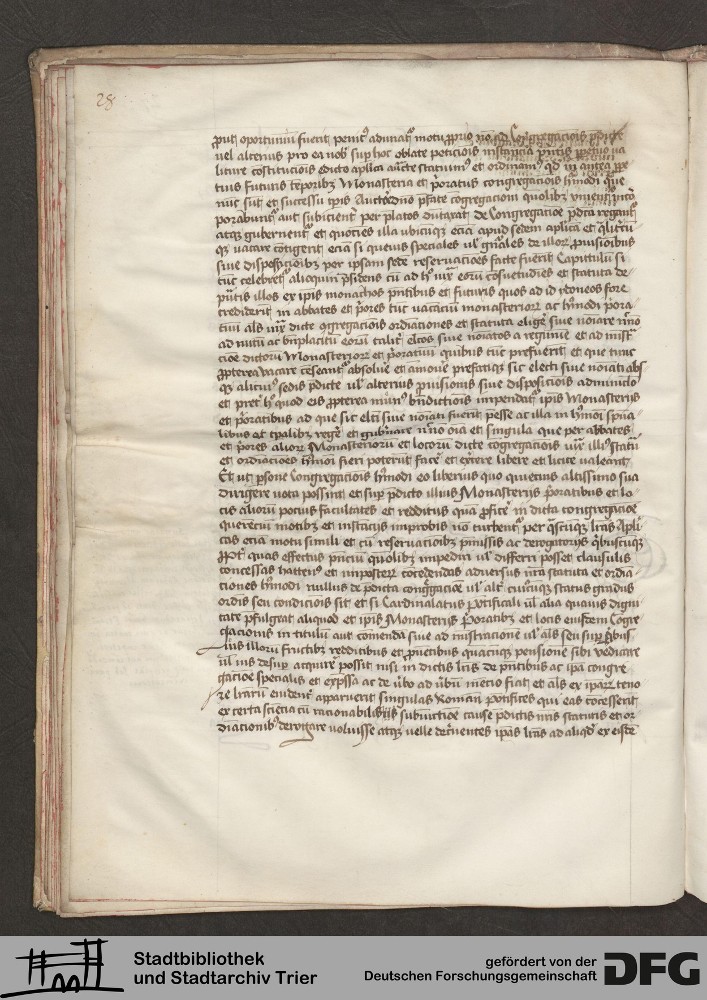 28
put oportunu fuerit penit adunati motu pprio no ad Congregacois
uel alterius pro ea nob sup hoc oblate peticiois instancia
liture costitucois edicto aplica aucte statuimus et ordinamus qd
tuis futuris teporibz Monasteria et poratus congregacois hmodi que
nuc sut et successu tpis Auctore dno pfate cogregacioni quolibz
porabunt aut subicient per platos dutaxat de Congregacoe pdca regant
atqz gubernent et quocies illa ubicuqz ecia apud sedem aplica et
qz vacare cotigerit ecia si queuis speciales ul gnales de illor puisioibus
siue disposicioibz per ipsam sede reseruacioes facte fuerit Capitulu si
tuc celebret alioquin psidens cu ad h iux eoru cosuetudies et statuta de
putatis illos ex ipis monachos pntibus et futuris quos ad id ydoneos fore
crediderit in abbates et pores tuc vacaciu monasterior ac hmodi pora
tuu als iux dicte ogregacois ordiaciones et statuta elige siue noiare
ad nutu ac bnplacitu eoru talit elcos siue noiatos a regimie et ad
cioe dictoru Monasterior et poratuu quibus tuc prefuerit et que tunc
ppterea vacare ceseant absolue et amoue prefatiqz sic electi siue noiati abs
qz alicui sedis pdicte ul alterius puisionis siue disposicois adminiclo
et preter h quod eis ppterea munus bndictiois impendat ipis Monasterijs
et poratibus ad que sic elti siue noiati fuerit pesse ac illa in hmoi spua
libus at tpalibz rege et gubnare nno oia et singula que per abbates
et pores alior Monasterioru et locoru dicte cogregaciois iux illius statuta
et ordiacioes hmoi fieri poterut face et exercere libere et licite valeant
Et ut psone Congregaciois hmodi eo liberius quo quiecius altissimo sua
dirigere uota possint et sup pdicto illius Monasterijs poratibus et lo
cis alioru pocius facultates et redditus qua pfice in dicta congregacoe
querenciu motibz et instancijs improbis no turbent per quascuqz lras Apli
cas ecia motu simili et cu reseruacioibz pmissis ac derogatorijs quibuscuqz
Ppt quas effectus pnciu quolibz impediri ul differri posset clausulis
concessas hattenus et imposteru cocedendas aduersus nra statuta et ordia
ciones hmodi nullus de pdicta congregacoe ul alter cuiucuqz status gradus
ordis seu condiciois sit et si Cardinalatus Pontificali ul alia quauis digni
tate pfulgeat aliquod et ipis Monasterijs Poratibus et locis eiusdem Cogre
gacionis in titulu aut comenda siue ad ministracione ul als seu super quibus
uis illoru fructibz redditibus et prouentibus quacuqz pensione sibi vedicare
ul ius desup acquirere possit nisi in dictis lris de pntibus ac ipa congre
gacioe specialis et expssa ac de ubo ad ubu mecio fiat et als ex ipar teno
re lraru euident apparuerit singulas Roman pontifices qui eas cocesserit
ex certa sciecia cu racionabilis subiuctioe cause pdictis nris statutis et or
diacionibus derogare voluisse atqz uelle decernentes ipas lras ad aliqd ex eisde
Stadtbibliothek
und Stadtarchiv Trier
gefördert von der
Deutschen Forschungsgemeinschaft
DFG